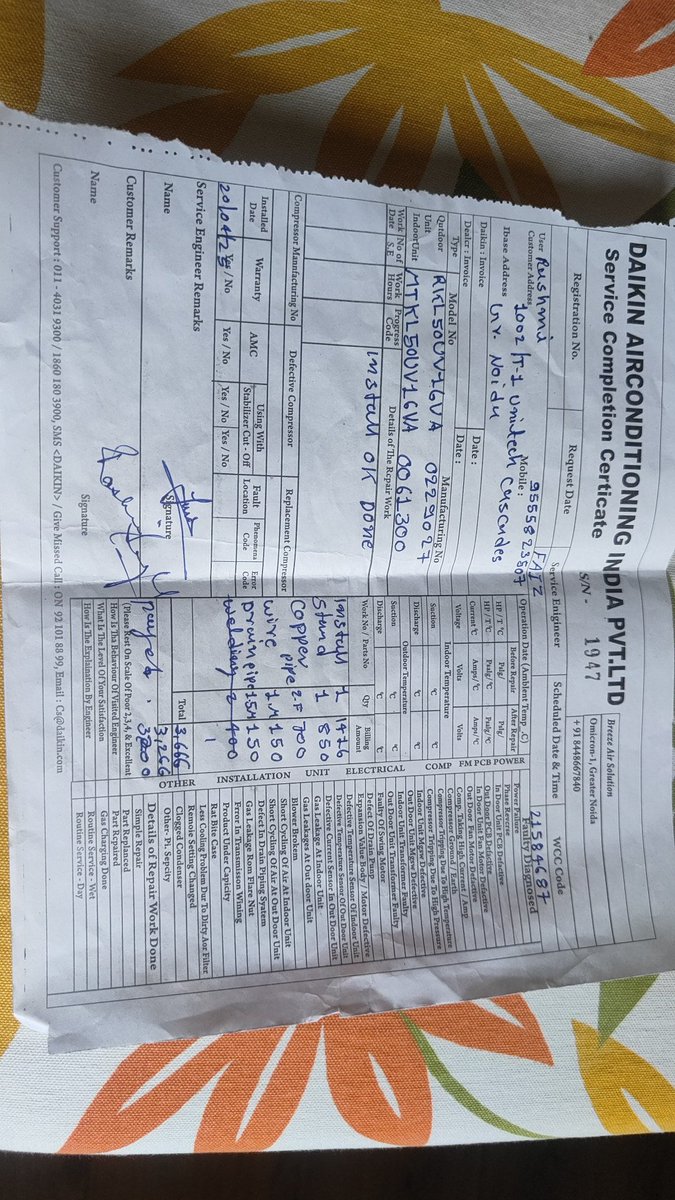 DAIKIN AIRCONDITIONING INDIA PVT.LTD
Service Completion Certicate
S/N - 1947
Breeze Air Solution
Omicron-1, Greater Noida
+ 91 8448667840
Registration No.
Request Date
Service Enigineer
Scheduled Date & Time
WCC Code
FAIZ
21584687
User Rushmi
Mobile : 9555823507
Customer Address 1002/T-1 Unitech Cascades
Ibase Address Gr. Noida
Daikin : Invoice
Date :
Dealer : Invoice
Date :
Type
Model No
Manufacturing No
Outdoor Unit RKL50UV16VA 0229027
IndoorUnit MTKL50UV16VA 0061300
Work Date
No of S.E
Work Hours
Progress Code
Details of The Repair Work
install ok Done
Compressor Mannfacturing No
Defective Compressor
Replacement Compressor
Installed Date
Warranty
AMC
Using With Stabilizer Cut - Off
Fault Location
Phenomena Code
Error Code
20/04/25 Yes / No
Yes / No
Yes / No
Yes / No
Service Engineer Remarks
Name
Signature
Customer Remarks
Name
Signature
Operation Date (Ambient Temp .C)
Before Repair
After Repair
HP / T °C
Pulg/
Pulg/
HP / T °C
Psulg/ °C
Psulg/ °C
Current °C
Amps/ °C
Amps/ °C
Voltage
Volts
Volts
Indoor Temperature
Suction
°C
°C
Discharge
°C
°C
Outdoor Temperature
Suction
°C
°C
Discharge
°C
°C
Work No / Parts No
Qty
Billing Amount
install 1
Stand 1 850
Copper pipe 2F 700
wire 1M 150
Drain pipe 1.5M 150
welding 2 400
Total 3,666
3,266
(Please Rest On Scale Of Poor 2,3,4, & Excellent
How Is Tha Behaviour Of Visited Engineer
What Is The Level Of Your Satisfaction
How Is The Explaination By Engineer
Faulty Diagnosed
POWER
Power Failure
Phase Reverse
PCB
In Door Unit PCB Defective
Out Door PCB Defective
FM
In Door Unit Fan Motor Defective
Out Door Fan Motor Defective
COMP
Comp. Taking High Current / Amp
Compressor Ground / Earth
Compressor Tripping Due To High Temperature
Compressor Tripping Due To High Pressure
ELECTRICAL
Indoor Unit Mgwv Defective
Out Door Unit Mgwv Defective
Indoor Unit Transformer Faulty
Out Door Unit Transformer Faulty
Faulty Of Swing Motor
UNIT
Defect Of Drain Panp
Expansion Value Body / Motor Defective
Defective Temperature Sensor Of Indoor Unit
Defect Temperature Sensor Of Out Door Unit
Defective Current Sensor In Out Door Unit
Gas Leakage At Indoor Unit
Gas Leakages At Out door Unit
Blower Brokem
INSTALLATION
Short Cycling Of Air At Indoor Unit
Short Cycling Of Air At Out Door Unit
Defect In Drain Piping Syatem
Gas Leakage Rom Flare Nut
Error In Transmisson Wining
Product Under Capicity
OTHER
Rat Bite Case
Less Cooling Problem Due To Dirty Aor Filter
Remoie Setting Changed
Clogged Condenser
Other- Pi. Sepcity
Details of Repair Work Done
Simple Repair
Part Replanced
Part Repaired
Gas Charging Done
Routine Service - Wet
Routine Service - Day
Customer Support : 011 - 4031 9300 / 1860 180 3900, SMS <DAIKIN> / Give Missed Call : ON 92 101 88 99, Email : Cs@daikin.com